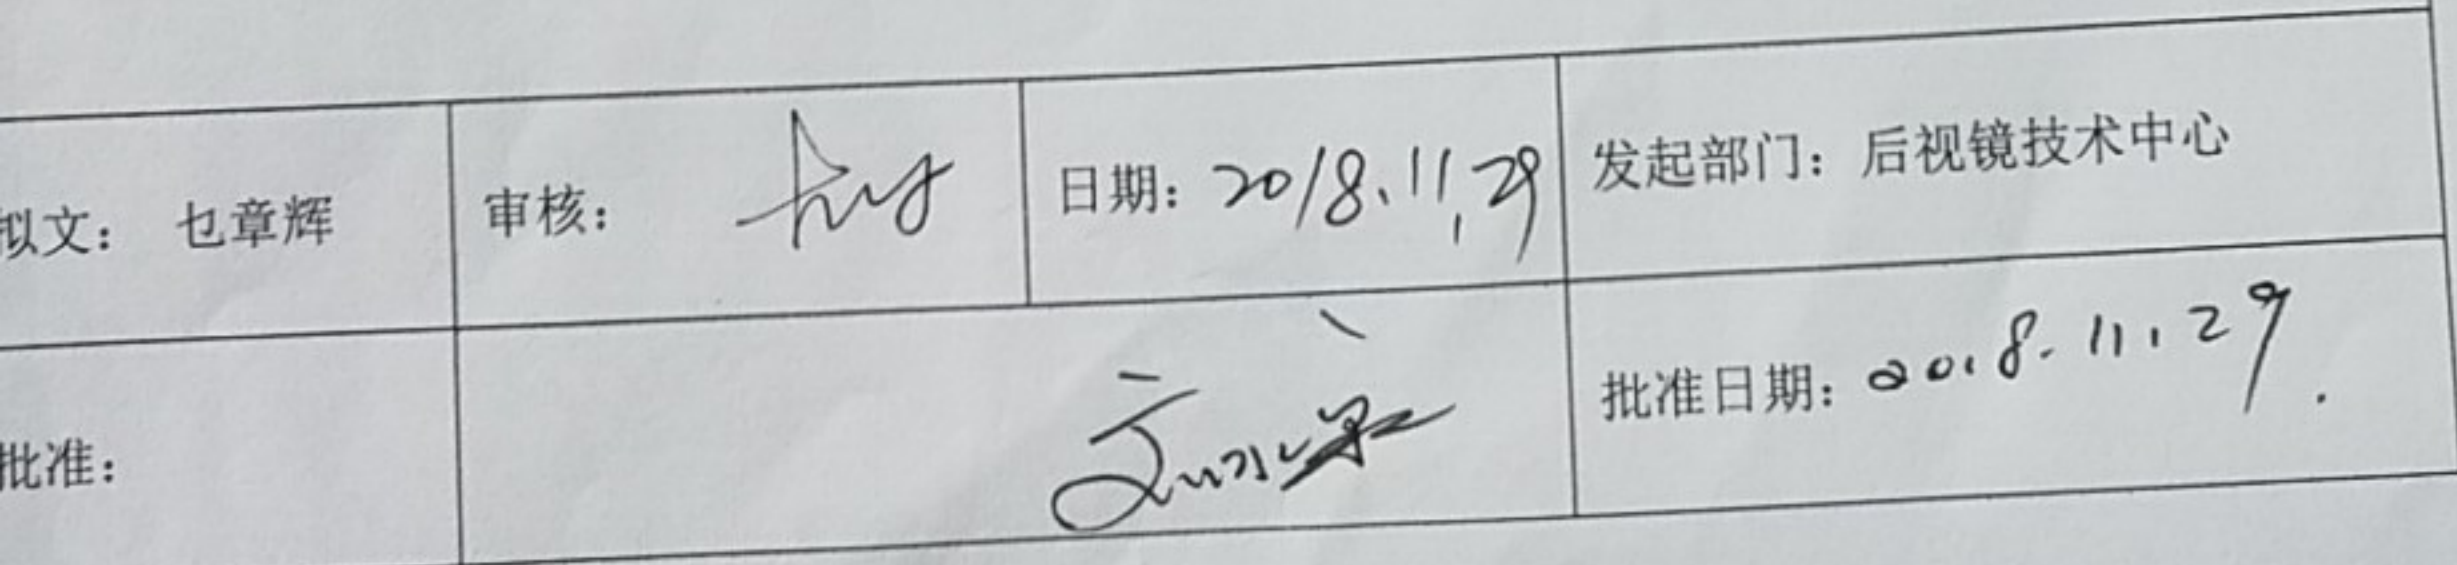 拟文： 乜章辉 审核： 日期：2018.11.29 发起部门：后视镜技术中心
批准： 批准日期：2018.11.29.